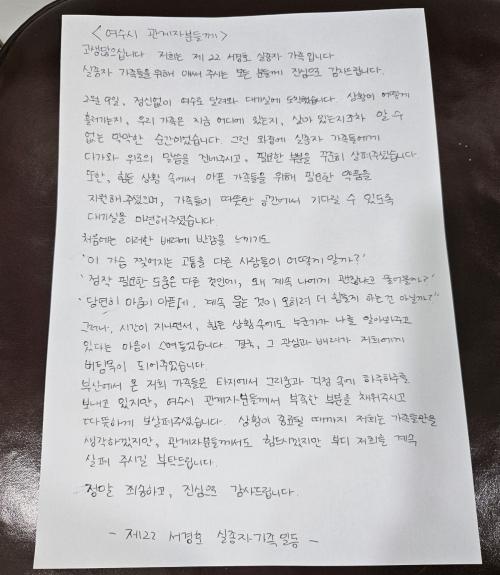 < 여수시 관계자분들께 >
고생많으십니다. 저희는 제 22 서경호 실종자 가족입니다
실종자 가족들을 위해 애써 주시는 모든 분들께 진심으로 감사드립니다.
2월 9일, 정신없이 여수로 달려와 대기실에 도착했습니다. 상황이 어떻게
흘러가는지, 우리 가족은 지금 어디에 있는지, 살아 있는지조차 알 수
없는 막막한 순간이었습니다. 그런 와중에 실종자 가족들에게
다가와 위로의 말씀을 건네주시고, 필요한 부분을 꾸준히 살펴주셨습니다
또한, 힘든 상황 속에서 아픈 가족들을 위해 필요한 약품을
지원해주셨으며, 가족들이 따뜻한 공간에서 기다릴 수 있도록
대기실을 마련해주셨습니다.
처음에는 이러한 배려에 반감을 느끼기도
'이 가슴 찢어지는 고통을 다른 사람들이 어떻게 알까?'
'정작 필요한 도움은 다른 것인데, 왜 계속 나에게 괜찮냐고 물어볼까?'
'당연히 마음이 아픈데, 계속 묻는 것이 오히려 더 힘들게 하는건 아닐까?'
그러나, 시간이 지나면서, 힘든 상황속에도 누군가가 나를 알아봐주고
있다는 마음이 스며들었습니다. 결국, 그 관심과 배려가 저희에게
버팀목이 되어주었습니다.
부산에서 온 저희 가족들은 타지에서 그리움과 걱정 속에 하루하루를
보내고 있지만, 여수시 관계자분들께서 부족한 부분을 채워주시고
따뜻하게 보살펴주셨습니다. 상황이 종료될 때까지 저희는 가족들만을
생각하겠지만, 관계자분들께서도 힘드시겠지만 부디 저희를 계속
살펴 주시길 부탁드립니다.
정말 죄송하고, 진심으로 감사드립니다.
- 제122 서경호 실종자가족일동 -